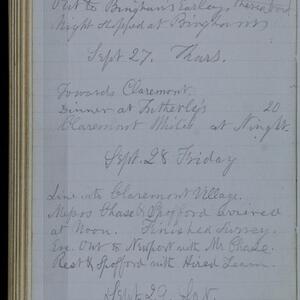 Out to Bingham's Early, 
Night Stopped at Bingham's
Sept 27. Thurs.
Towards Claremont.
Dinner at Tutherly's 20
Claremont Mills at Night.
Sept. 28 Friday
Line into Claremont Village.
Messrs Chase & Spofford arrived
at Noon. Finished Survey.
Eve. Out to Newport with Mr Chase.
Rest & Spofford with Hired Team.
Sept 29. Sat.